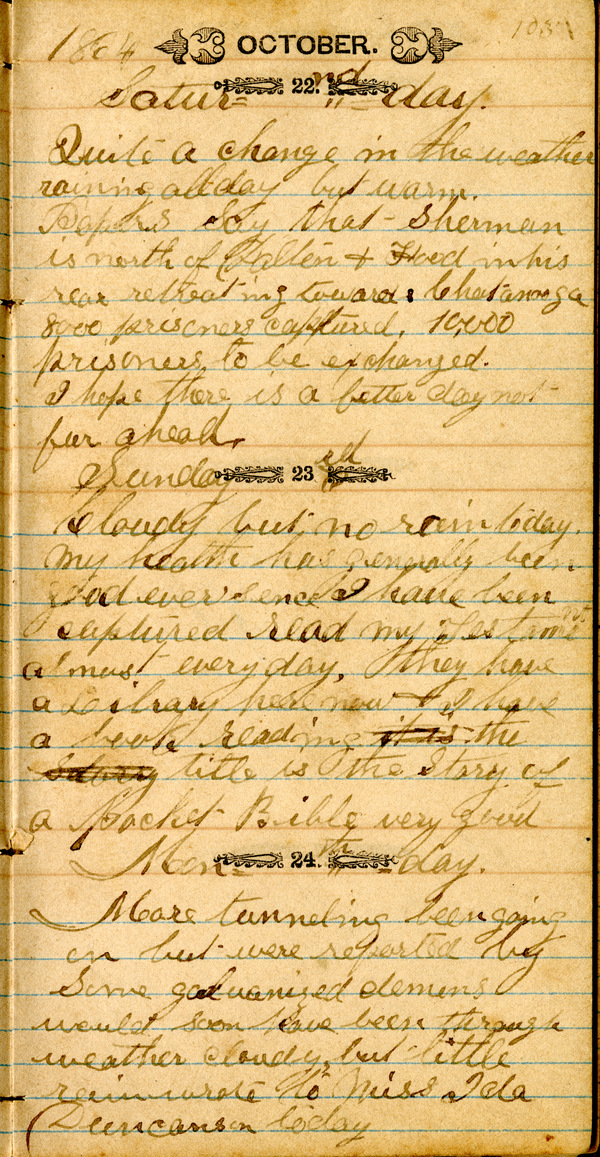 1864 OCTOBER.
22.nd
Satur= =day.
Quite a change in the weather
raining all day but warm.
Papers Say that Sherman
is north of Dalten & Hood in his
rear retreating towards Chatanooga
8000 prisoners captured. 10,000
prisoners to be exchanged.
I hope there is a better day not
far ahead.
Sunday 23rd
Cloudy but no rain today.
my health has generally been
good ever sence I have been
captured read my Testament
almost every day. they have
a Library here now & I have
a book reading it is the
title is the Story of
a Pocket Bible very good
Mon= 24.th =day.
More tunneling been going
on but were reported by
Some galvanized demons
would soon have been through
weather cloudy but little
rain wrote to Miss Ida
Duncanson today